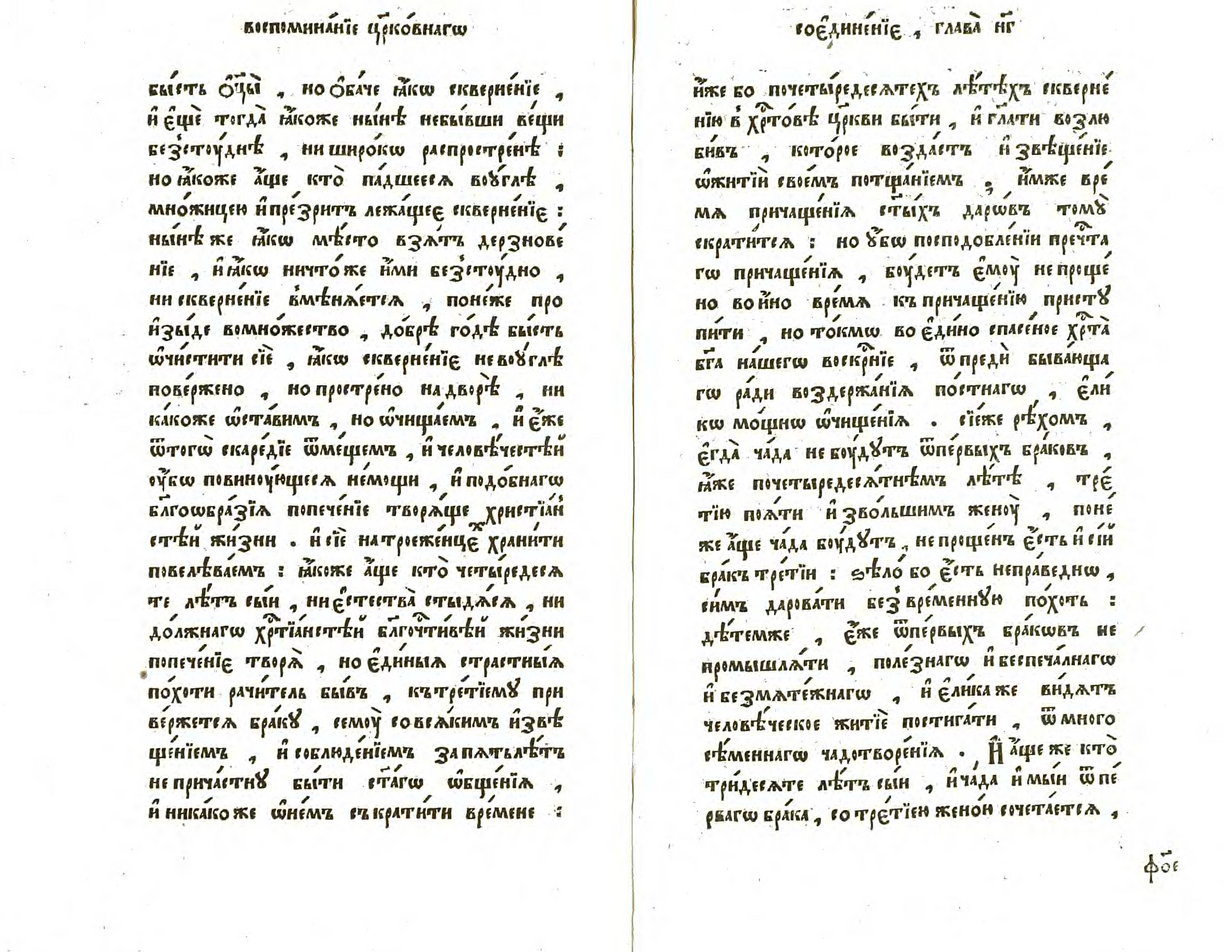 воспомина́нїе цр҃ко́внагѡ
бы́сть ѻ҆ц҃ы̀ , но ѻ҆ба́че ꙗ҆́кѡ скверне́нїе ,
и҆ є҆щѐ тогда̀ ꙗ҆́коже ны́нѣ небы́вши ве́щи
беꙁ̾стꙋ́днѣ , ни широ́кѡ распростре́нѣ :
но ꙗ҆́коже а҆́ще кто̀ па́дшееся воу҆́глѣ ,
мно́жицею и҆ пре́ꙁритъ лежа́щеє скверне́нїє :
ны́нѣ же ꙗ҆́кѡ мѣ́сто вꙁѧ́тъ дерꙁнове́
нїе , и҆ ꙗ҆́кѡ ничто́же и҆́ми беꙁ̾стоу́дно ,
ни скверне́нїе вмѣнѧ́ется , поне́же про
и҆ꙁы́де вомно́жество , до́брѣ го́дѣ бы́сть
ѡ҆чи́стити сїѐ , ꙗ҆́кѡ скверне́нїє не воу҆́глѣ
пове́ржено , но простре́но на дворѣ̀ , ни
ка́коже ѡ҆ста́вимъ , но ѡ҆чища́емъ , и҆ є҆́же
ѿтогѡ̀ скаре́дїе ѿме́щемъ , и҆ человѣ́честѣй
оу҆́бѡ повинꙋ́ющеся не́мощи , и҆ подо́бнагѡ
бл҃гоѡбра́ꙁїѧ попече́нїе творѧ́ще христїа́н
стѣй жи́ꙁни . и҆ сїѐ на трое́женцєх храни́ти
повелѣва́емъ : ꙗ҆́коже а҆́ще кто̀ четы́редесѧ
те лѣ́тъ сы́и , ни є҆стества̀ стыдѧ́сѧ , ни
до́лжнагѡ хрⷭ҇тїа́нстѣй бл҃гочⷭ҇ти́вѣй жи́ꙁни
попече́нїє творѧ̀ , но є҆ди́ныѧ стра́стныѧ
по́хоти рачи́тель бы́въ , къ тре́тїемꙋ при
ве́ржетсѧ бра́кꙋ , семоу̀ со всѧ́кимъ и҆ꙁвѣ
ще́нїемъ , и҆ соблюде́нїемъ ꙁа пѧ́ть лѣ́тъ
не прича́стнꙋ бы́ти ст҃а́гѡ ѡ҆бще́нїѧ ,
и҆ ника́коже ѡ҆ не́мъ съкрати́ти вре́мене :
соє҆дине́нїє , глава̀ н҃г
и҆́же бо по четы́редесѧтехъ лѣ́тѣхъ скверне́
нїю в хрⷭ҇то́вѣ цр҃кви бы́ти , и҆ гл҃ати воꙁлю
би́въ , кото́рое воꙁда́стъ и҆ꙁвѣще́нїе
ѡ҆ житїѝ свое́мъ потща́нїемъ , и҆́мже вре́
мѧ причаще́нїѧ ст҃ы́хъ даро́въ томꙋ̀
скрати́тсѧ : но оу҆́бѡ посподобле́нїи преч҃та
гѡ причаще́нїѧ , боу́детъ є҆моу̀ не проще́
но во и҆́но вре́мѧ къ причаще́нїю пристꙋ
пи́ти , но то́кмѡ во є҆ди́но спасе́ное хрⷭ҇та̀
бг҃а на́шегѡ воскрⷭ҇нїе , ѿ предѝ быва́юща
гѡ ра́ди воꙁдержа́нїѧ по́стнагѡ , є҆ли́
кѡ мо́щнѡ ѡ҆чище́нїѧ . сїе́же рѣ́хомъ ,
є҆гда̀ ча́да не боу́дꙋтъ ѿ пе́рвыхъ бра́ковъ ,
ꙗ҆́же по четы́редесѧтнѣмъ лѣ́тѣ , тре́
тїю поѧ́ти и҆ꙁво́льшимъ женоу̀ , поне́
же а҆́ще ча́да боу́дꙋтъ , не проще́нъ є҆́сть и҆ сі́й
бра́къ тре́тїи : ѕѣло́ бо є҆́сть непра́веднѡ ,
си́мъ дарова́ти беꙁ̾вре́меннꙋю по́хоть :
дѣ́темже , є҆́же ѿ пе́рвыхъ бра́кѡвъ не
промышлѧ́ти , поле́ꙁнагѡ и҆ беспеча́лнагѡ
и҆ беꙁмѧте́жнагѡ , и҆ є҆ли́ка же ви́дѧтъ
человѣ́ческое житїѐ постига́ти , ѿ много
сѣ́меннагѡ чадотворе́нїѧ . И҆ а҆́ще же кто̀
три́десѧте лѣ́тъ сы́и , и҆ ча́да и҆мы́и ѿ пе́
рвагѡ бра́ка , со тре́тїею жено́ю сочета́етсѧ ,
фо҃е